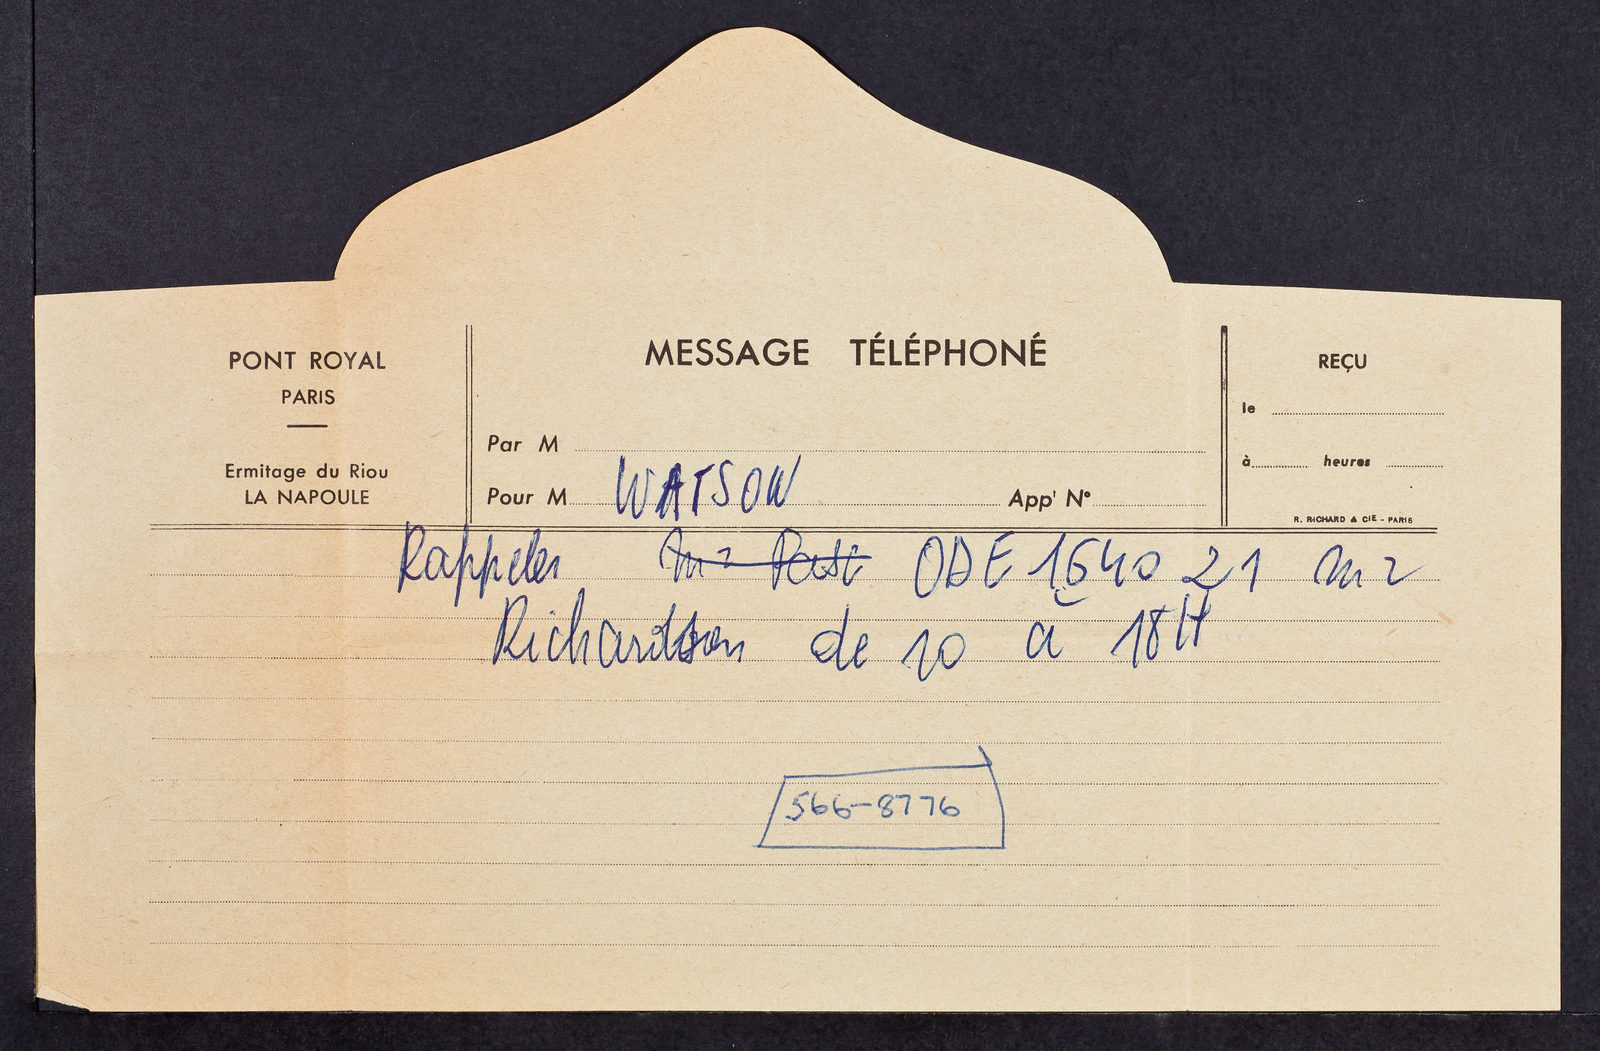 PONT ROYAL
PARIS
Ermitage du Riou
LA NAPOULE
MESSAGE TÉLÉPHONÉ
Par M
Pour M WATSON App' N°
REÇU
le
à heures
R. RICHARD & CIE - PARIS
Rappeler ODE 1640 21 Mr
Richardson de 10 a 18H
566-8776